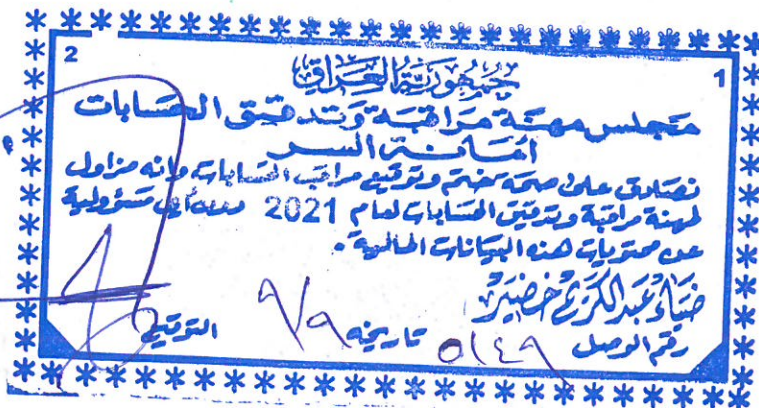 2 1
جمهورية العراق
مجلس مهنة مراقبة وتدقيق الحسابات
امانة السر
نصادق على صحة ختم وتوقيع مراقب الحسابات وانه مزاول
لمهنة مراقبة وتدقيق الحسابات لعام 2021 دون اي مسؤولية
عن محتويات هذه البيانات المالية.
ضياء عبد الكريم خضير
رقم الوصل ٥١٤٩ تاريخه ٩/٩ التوقيع